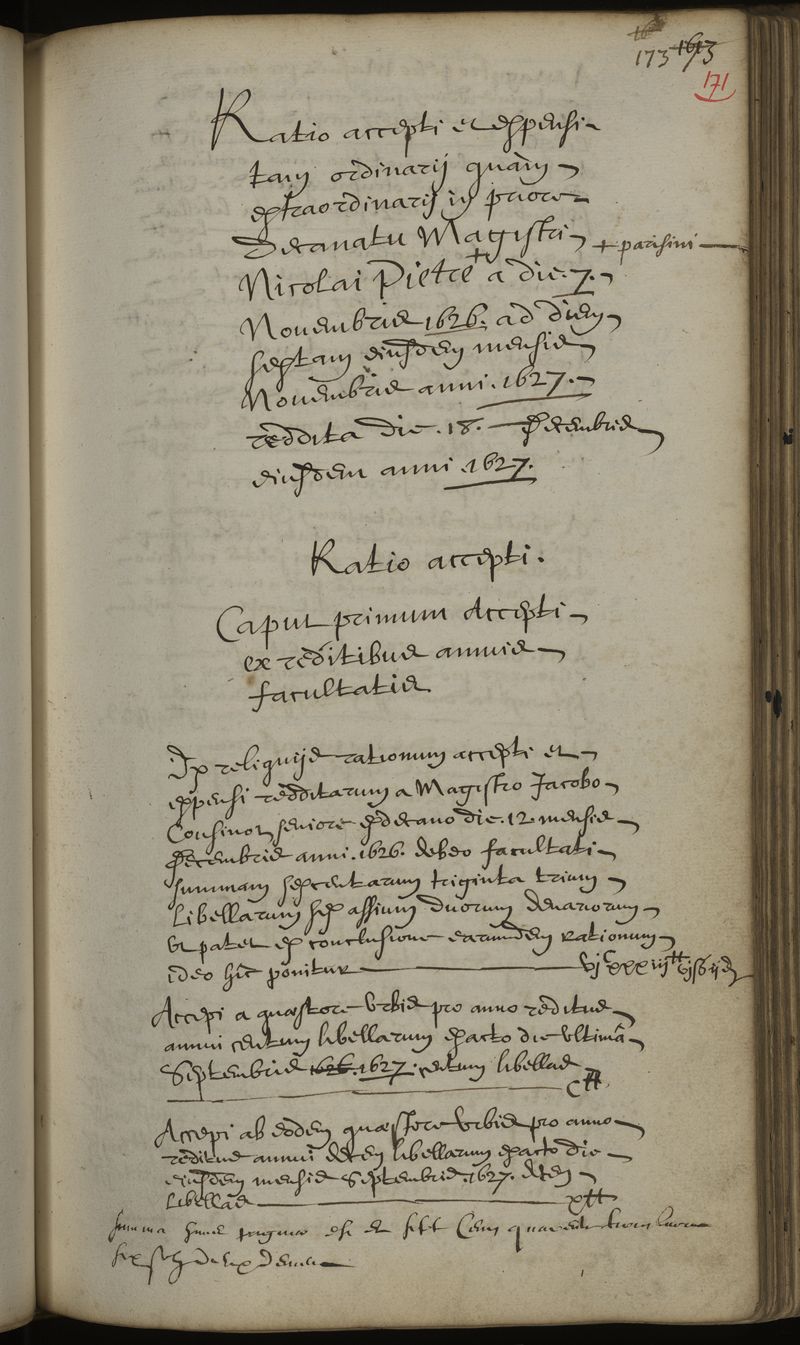 173 1673
171
Ratio accepti et expensi
tam ordinarij quàm
extraordinarij in priore
Decanatu Magistri + parisini
Nicolai Pietre + a die .7.
Nouembris 1626. ad diem
septam eiusdem mensis
Nouembris anni .1627.
reddita die .18. Decembris
eiusdem anni .1627.
Ratio accepti.
Caput primum Accepti
ex reditibus annuis
facultatis
Ex reliquijs rationum accepti et
expensi redditarum a Magistro Jacobo
Cousinot seniore exdecano die .12. mensis
Decembris anni .1626. debeo facultati
summam septentarum triginta trium
libellarum sex assium duorum denariorum
vt patet ex conclusione earumdem rationum
ideo hîc ponitur
Accepi a quæstore vrbis pro anno reditus
annui centum libellarum exacto die vltimâ
Septembris 1626 .1627. centum libellas
C tt
Accepi ab eodem quæstore vrbis pro anno
reditus annui decem libellarum exacto die
eiusdem mensis Septembris .1627. decem
libellas x tt
summa huius pagine est de sept Cens quarente trois liures
six solz deux deniers